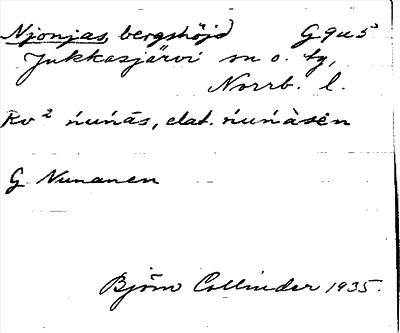 Njonjas bergshöjd G9u5³
Jukkasjärvi sn o. tg,
Norrb. l.
Rv² ńuńás, elat. ńuńàsėn
G Nunanen
Björn Collinder 1935.